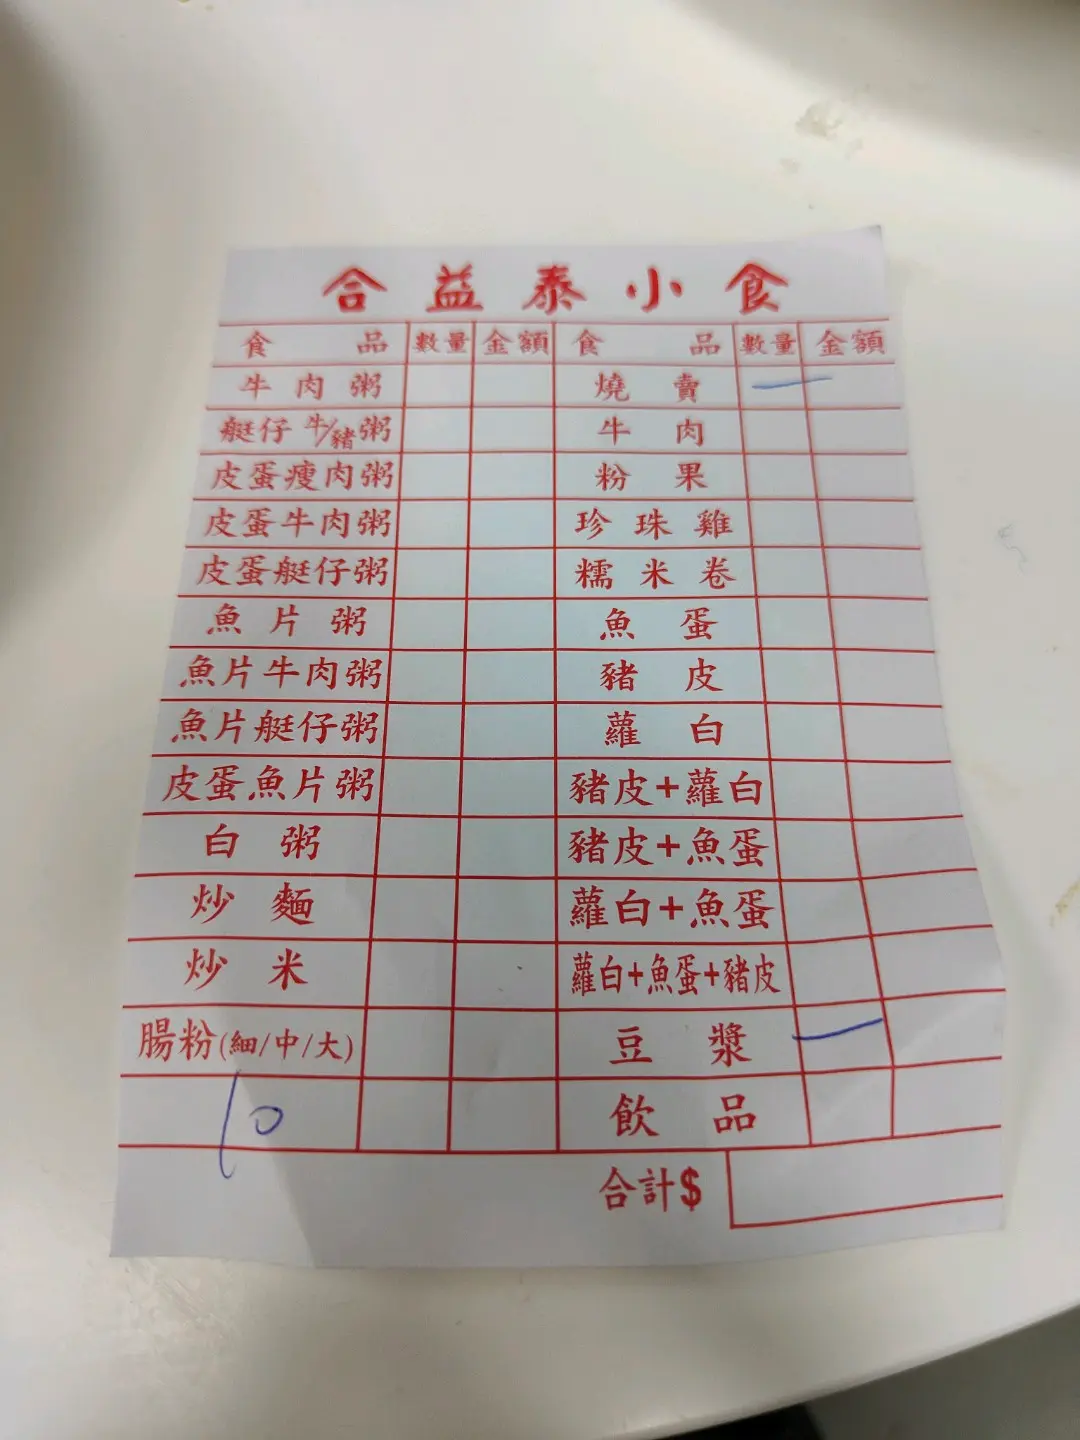 合益泰小食
食品 數量 金額 食品 數量 金額
牛肉粥 燒賣 一
艇仔牛/豬粥 牛肉
皮蛋瘦肉粥 粉果
皮蛋牛肉粥 珍珠雞
皮蛋艇仔粥 糯米卷
魚片粥 魚蛋
魚片牛肉粥 豬皮
魚片艇仔粥 蘿白
皮蛋魚片粥 豬皮+蘿白
白粥 豬皮+魚蛋
炒麵 蘿白+魚蛋
炒米 蘿白+魚蛋+豬皮
腸粉(細/中/大) 豆漿 一
10 飲品
合計$